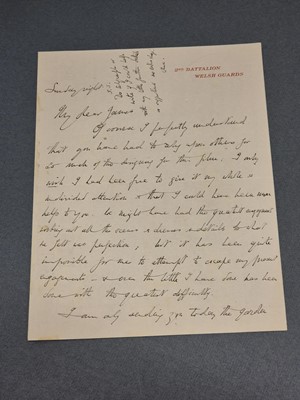 2ND BATTALION
WELSH GUARDS
Sunday night.
My dear James
Of course I perfectly understand
that you have had to rely upon others for
so much of the designing for this play. I only
wish I had been free to give it my whole &
undivided attention & that I could have been more
help to you. We might have had the greatest enjoyment
working out all the scenes & dresses & details to what
we felt was perfection, but it has been quite
impossible for me to attempt to escape my present
engagements — & even the little I have done has been
done with the greatest difficulty.
I am only sending you today the garden